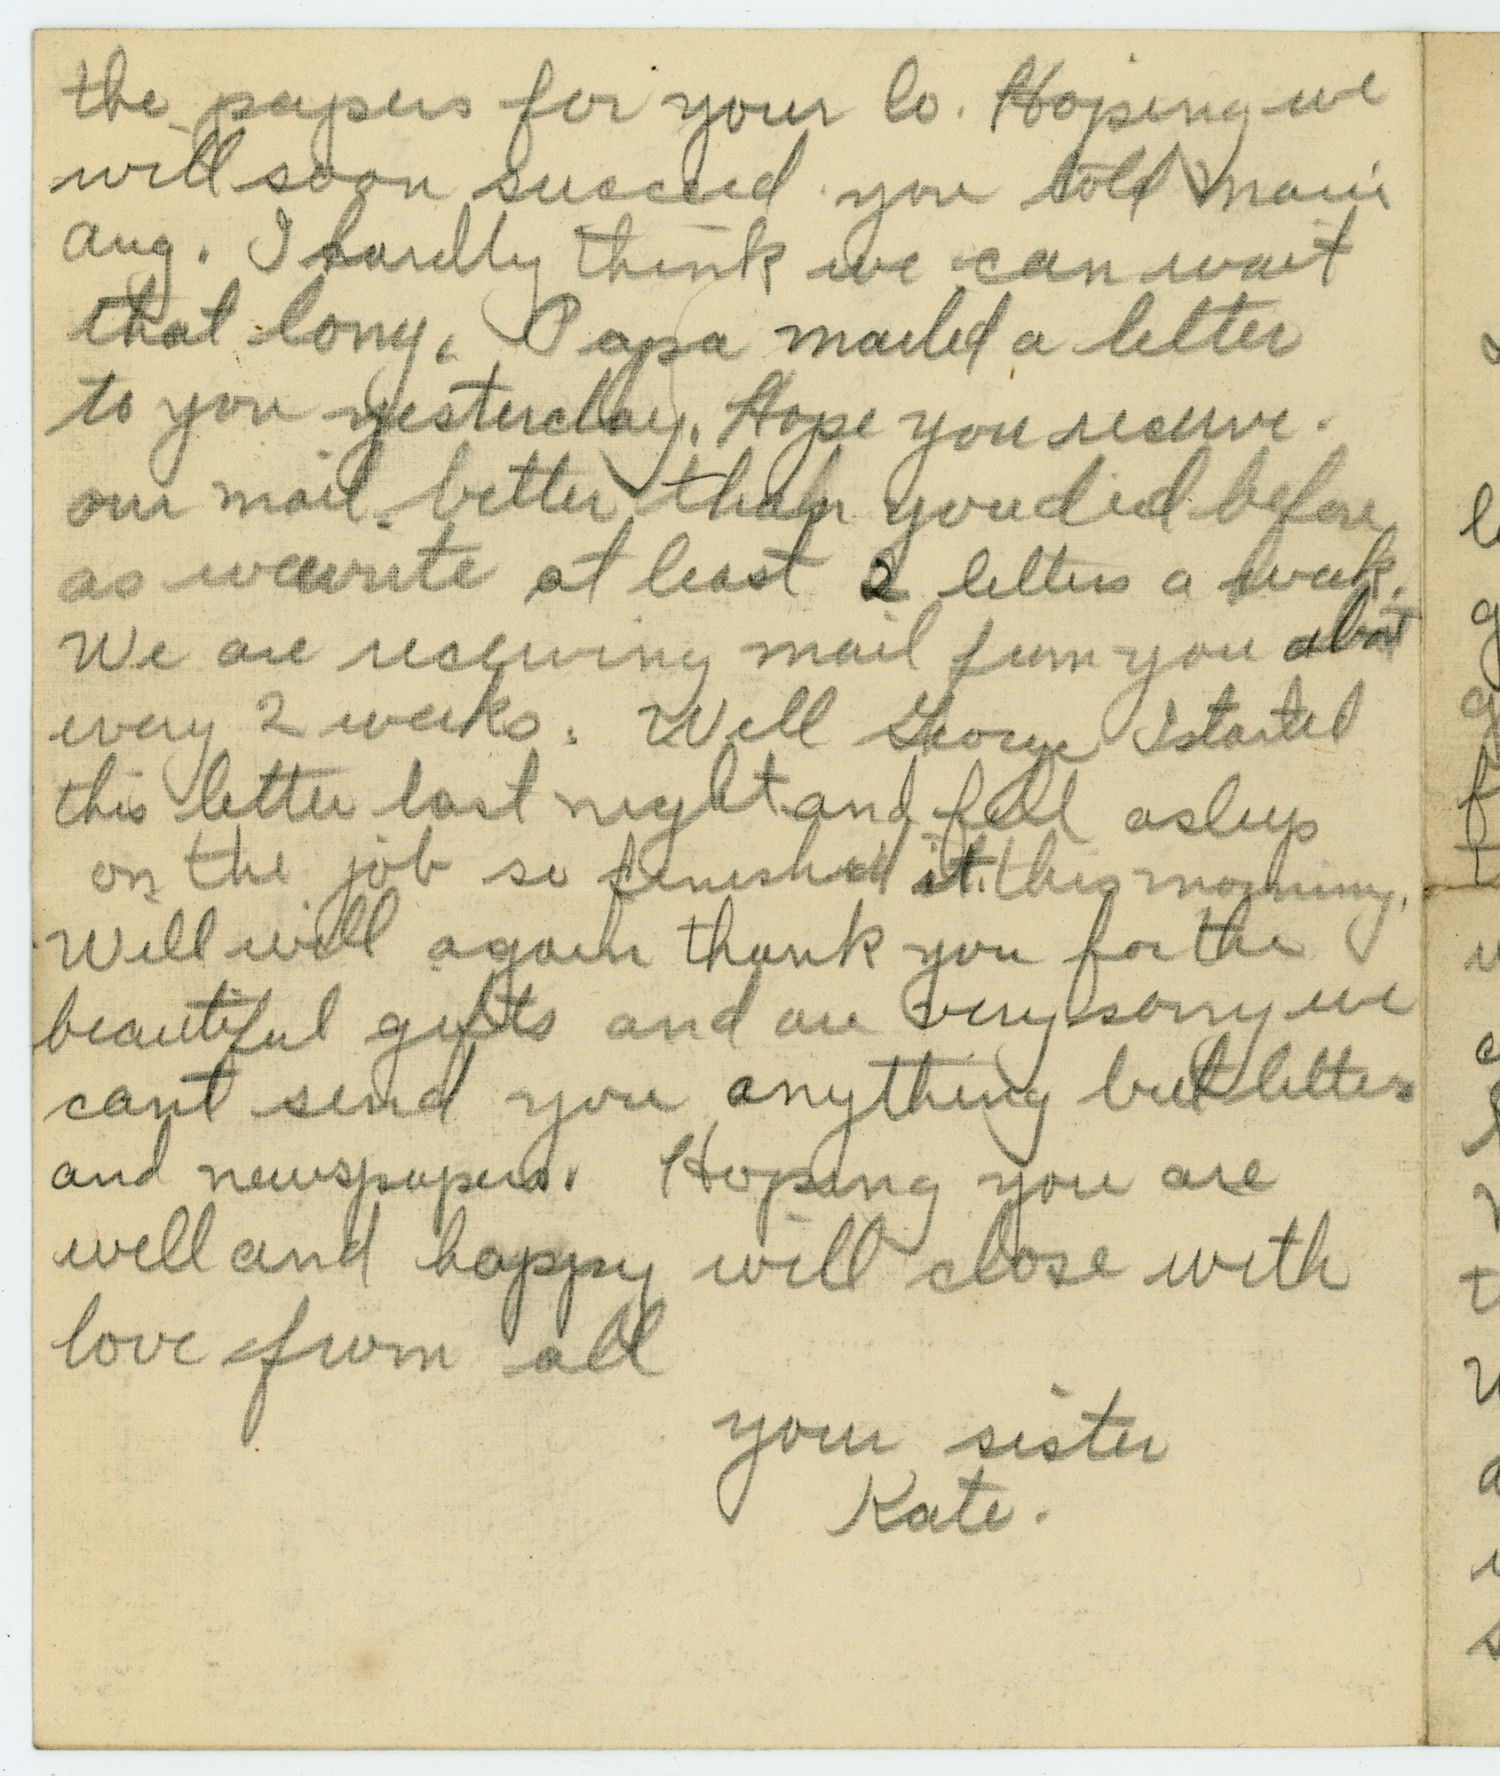 the papers for your Co. Hoping we
will soon succeed you told Marie
Aug. I hardly think we can wait
that long. Papa mailed a letter
to you yesterday. Hope you receive
our mail better than you did before
as we write at least 2 letters a week.
We are receiving mail from you about
every 2 weeks. Well George I started
this letter last night and fell asleep
on the job so finished it this morning.
Well will again thank you for the
beautiful gifts and are very sorry we
cant send you anything but letters
and newspapers. Hoping you are
well and happy will close with
love from all
your sister
Kate.